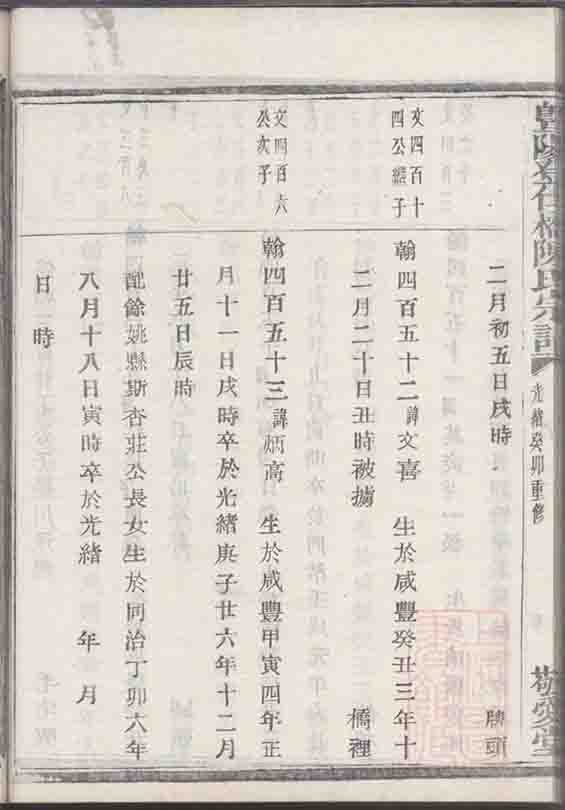 二月初五日戌時 牌頭
文四百十四公繼子
翰四百五十二諱文喜 生於咸豐癸丑三年十
二月二十日丑時被擄 橋裡
文四百六公次子
翰四百五十三諱炳高 生於咸豐甲寅四年正
月十一日戌時卒於光緒庚子廿六年十二月
廿五日辰時
配餘姚縣斯杏莊公長女生於同治丁卯六年
八月十八日寅時卒於光緒 年 月
日 時
陳氏宗譜 光緒癸卯重修